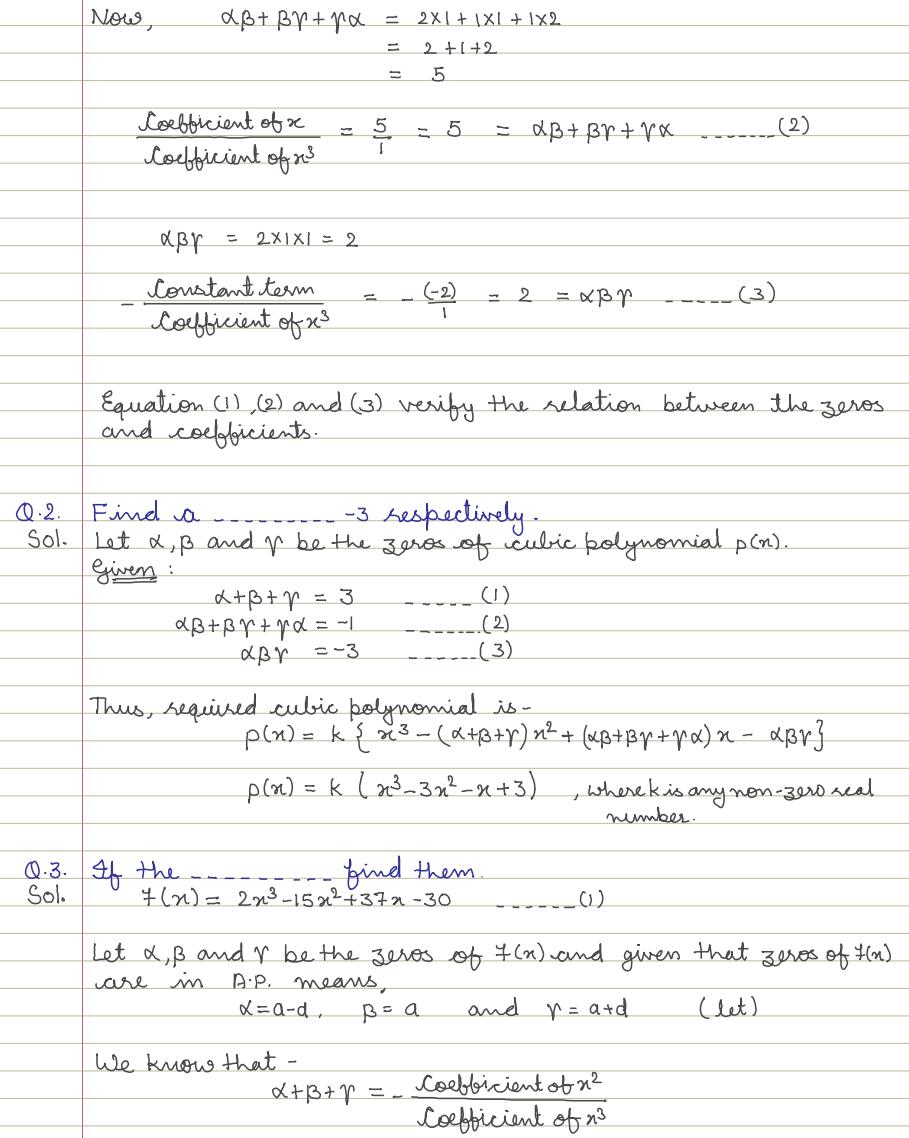 Now, αβ + βγ + γα = 2×1 + 1×1 + 1×2
= 2 + 1 + 2
= 5
Coefficient of x / Coefficient of x³ = 5/1 = 5 = αβ + βγ + γα -------(2)
αβγ = 2×1×1 = 2
- Constant term / Coefficient of x³ = - (-2)/1 = 2 = αβγ -----(3)
Equation (1), (2) and (3) verify the relation between the zeros
and coefficients.
Q.2. Find a --------- -3 respectively.
Sol. Let α, β and γ be the zeros of cubic polynomial p(x).
Given :
α+β+γ = 3 -----(1)
αβ+βγ+γα = -1 -------(2)
αβγ = -3 ------(3)
Thus, required cubic polynomial is -
p(x) = k { x³ - (α+β+γ) x² + (αβ+βγ+γα) x - αβγ }
p(x) = k ( x³ - 3x² - x + 3 ) , where k is any non-zero real
number.
Q.3. If the --------- find them.
Sol. f(x) = 2x³ - 15x² + 37x - 30 ------(1)
Let α, β and γ be the zeros of f(x) and given that zeros of f(x)
are in A.P. means,
α = a-d, β = a and γ = a+d (let)
We know that -
α+β+γ = - Coefficient of x² / Coefficient of x³